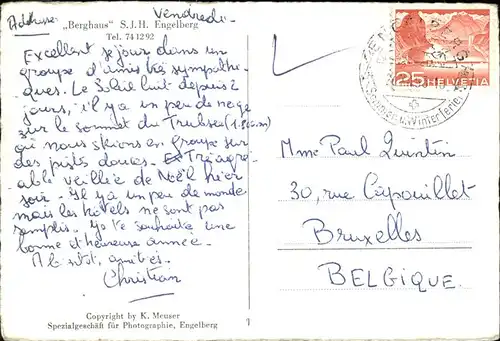 Addresse
Vendredi.
„Berghaus" S.J.H. Engelberg
Tel. 74 12 92
Excellent séjour dans un
groupe d'amis très sympathi-
ques. Le Soleil luit depuis 2
jours, il y a un peu de neige
sur le sommet du Trubsee
où nous skions en groupe sur
des pistes douces. Très agré-
able veillée de Noël hier
soir. Il y a un peu de monde
mais les hôtels ne sont pas
remplis. Je te souhaite une
bonne et heureuse année.
A bientôt, amitiés.
Christian
Copyright by K. Meuser
Spezialgeschäft für Photographie, Engelberg
1
25 HELVETIA
Sommer u. Winterferien
Mme Paul Quintin
30, rue Capouillet
Bruxelles
BELGIQUE.